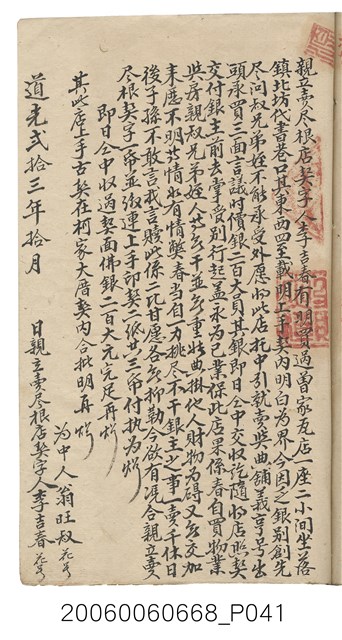 親立賣尽根店契字人李吉春有明買過面家瓦店一座二小间坐落
鎮北坊代書巷口其東西四至載明上手契內明白為界今因乏銀别創先
尽问叔兄弟姪不能承受外愿將此店托中引就賣與典舖義亨号出
頭承買三面言議時價銀二百大員其銀即日仝中交收訖隨將店照契
交付銀主前去掌管别行起盖永為己業保此店果係春自買物業
與房親叔兄弟姪人等無干並無重張典掛他人財物為碍又無交加
來歷不明等情如有情弊春当自力挑尽不干銀主之事一賣千休日
後子孫不敢言找言贖此係二比甘愿各無抑勒今欲有憑合親立賣
尽根契字一帋並繳連上手印契二纸共三帋付执為炤
即日仝中收過契面佛銀二百大元完足再炤
其此店上手古契在柯家大厝契內合批明再炤
為中人翁旺叔花号
道光弍拾三年拾月 日親立賣尽根店契字人李吉春花号
20060060668_P041